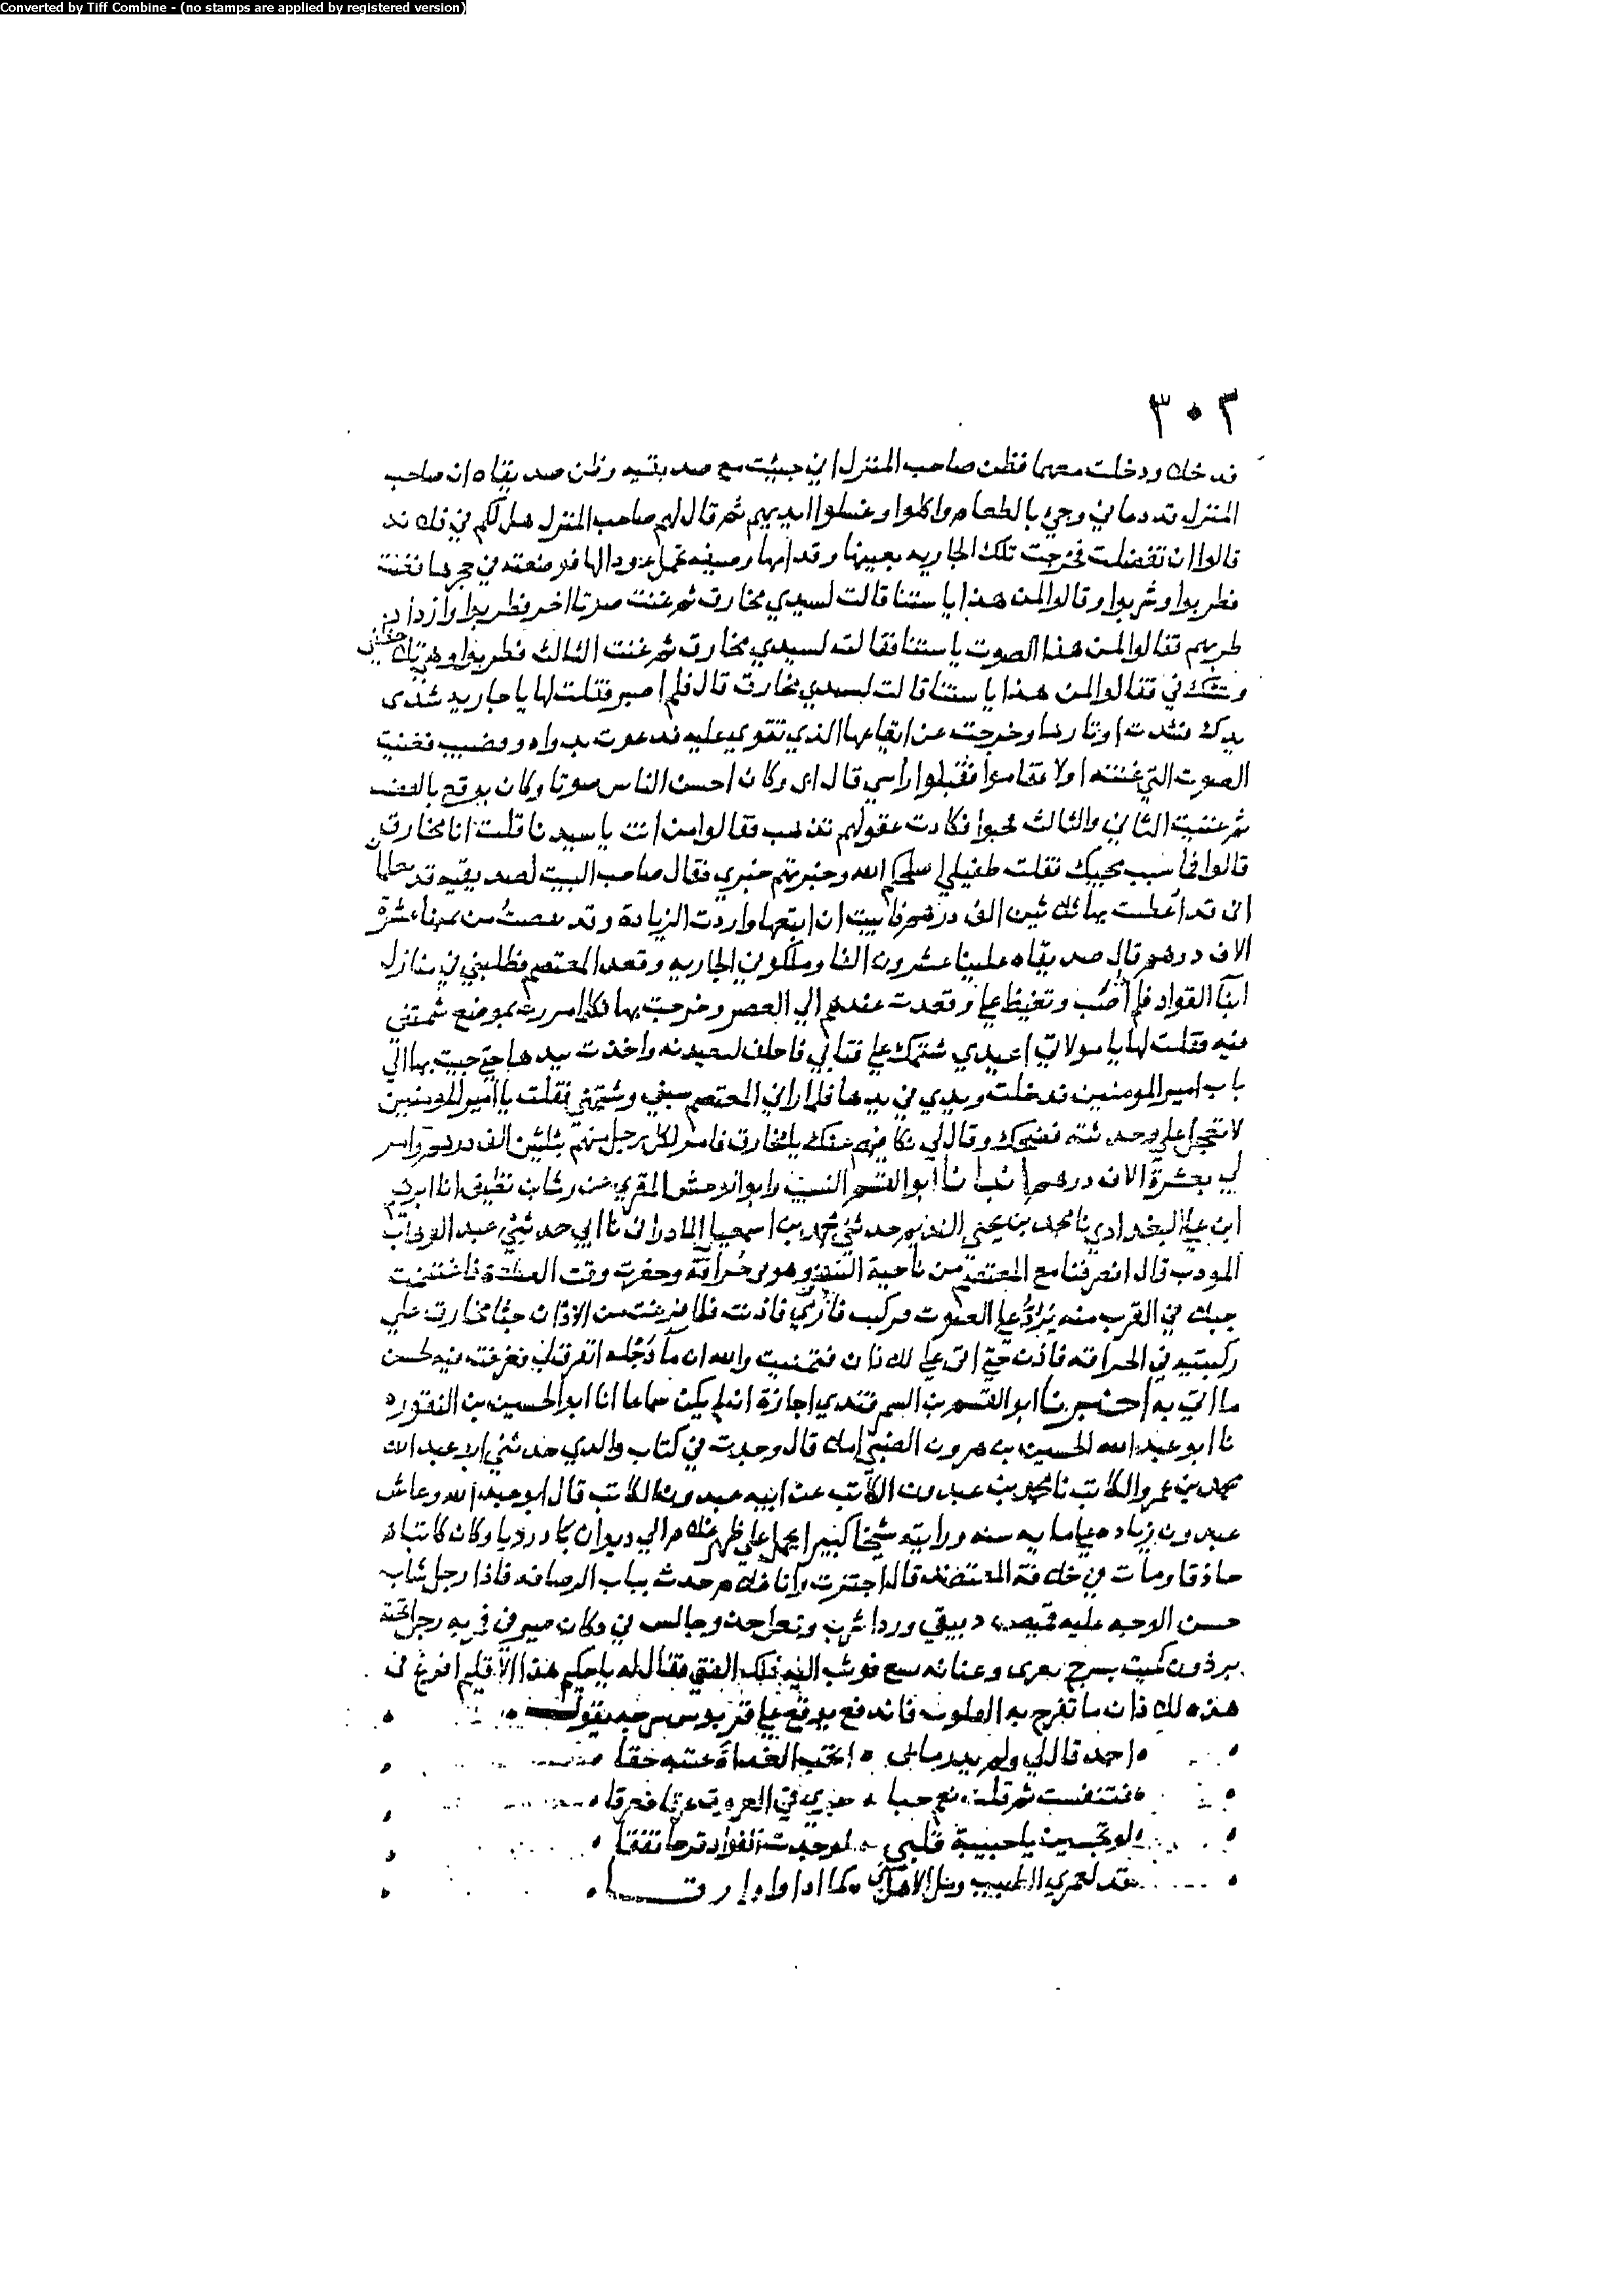 Converted by Tiff Combine - (no stamps are applied by registered version)
٣٠٣
فدخلا ودخلت معهما فظن صاحب المنزل اني جيت مع صديقيه وظن صديقاه ان صاحب
المنزل قد دعاني وجي بالطعام واكلوا وغسلوا ايديهم ثم قال لهم صاحب المنزل هل لكم في فلانه
قالوا ان تفضلت فخرجت تلك الجاريه بعينها وقدامها وصيفه تحمل عودا لها فوضعته في حجرها فغنت
فطربوا وشربوا وقالوا لمن هذا يا ستنا قالت لسيدي مخارق ثم غنت صوتا اخر فطربوا وازداد
طربهم فقالوا لمن هذا الصوت يا ستنا فقالت لسيدي مخارق ثم غنت الثالث فطربوا وهي تلاحظني
وتشك في فقالوا لمن هذا يا ستنا قالت لسيدي مخارق قال فلم اصبر فقلت لها يا جاريه شدى
يدك فشدت اوتارها وخرجت عن ايقاعها الذي تقوى عليه فدعوت بدواه وقضيب فغنيت
الصوت التي غنته اولا فقاموا فقبلوا راسي قال اى وكان احسن الناس صوتا وكان يوقع بالقضيب
ثم غنيت الثاني والثالث فجنوا فكادت عقولهم تذهب فقالوا من انت يا سيدنا قلت انا مخارق
قالوا فما سبب مجيك فقلت طفيلي اصلحكم الله وخبرتهم خبري فقال صاحب البيت لصديقيه قد تعلما
اني قد اعطيت بها ثلثين الف درهم فابيت ان ابيعها واردت الزيادة وقد نقصت من ثمنها عشرة
الاف درهم قال صديقاه علينا عشرون الفا وملكوني الجاريه وقعد المعتصم فطلبني في منازل
ابنا القواد فلم اصب وتغيظ علي وقعدت عندهم الي العصر وخرجت بها فكلما مررت بموضع شتمتني
فيه فقلت لها يا مولاتي اعيدي شتمك علي فتابي فاحلف لتعيدنه واخذت بيدها حتي جيت بها الي
باب امير المومنين فدخلت ويدي في يدها فلما راني المعتصم سبني وشتمني فقلت يا امير المومنين
لا تعجل علي وحدثته فضحك وقال لي نكافيهم عنك يا مخارق فامر لكل رجل منهم بثلثين الف درهم وامر
لي بعشرة الاف درهم انبانا ابو القسم النسيب وابو الوحش المقري عن رشا بن نظيف انا ابرهيم
ابن علي البغدادي نا محمد بن يحيي النديم حدثني محمد بن اسمعيل المادراني نا ابي حدثني عبد الوهاب
المودب قال انصرفنا مع المعتصم من ناحية القفص وهو في حراقة وحضرت وقت العتمة فاغتنمت
ركبتيه في الحراقه فاذن حتي اتى علي الاذان فتمنيت والله ان ما دجله انفرق لي فغرقت فيه لحسن
ما اتي به اخبرنا ابو القسم بن السمرقندي اجازة ان لم يكن سماعا انا ابو الحسين بن النقور
نا ابو عبد الله الحسين بن هرون الضبي املا قال وجدت في كتاب والدي حدثني ابو عبد الله
محمد بن عمرو الكاتب نا محمد بن عبدون الكاتب عن ابيه عبدون الكاتب قال ابو عبد الله وعاش
عبدون زياده علي مايه سنه ورايته شيخا كبيرا يحمل علي ظهر غلام الي ديوان بادوريا وكان كاتبا
حاذقا ومات في خلافة المعتضد قال اجتزت وانا غلام حدث بباب الرصافه فاذا رجل شاب
حسن الوجه عليه قميص دبيقي وردا شرب ونعل حذو جالس في دكان صيرفي فمر به رجل تحته
برذون كميت بسرج مغرى وعنانه معه فوثب اليه ذلك الفتي فقال له يا حكيم هذا الاقليم افرغ في
هذه الاذان ما تفرح به القلوب فاندفع يوقع علي قربوس سرجه يقول
احمد قال لي ولم يدر ما بي اتحب الغداة عتبه حقا
فتنفست ثم قلت نعم حبا جرى في العروق عرقا فعرقا
لو تجسين يا حبيبة قلبي لوجدت الفواد قرحا تفقا
قد لعمري مل الطبيب ومل الاهل مني مما اداوا وارقا